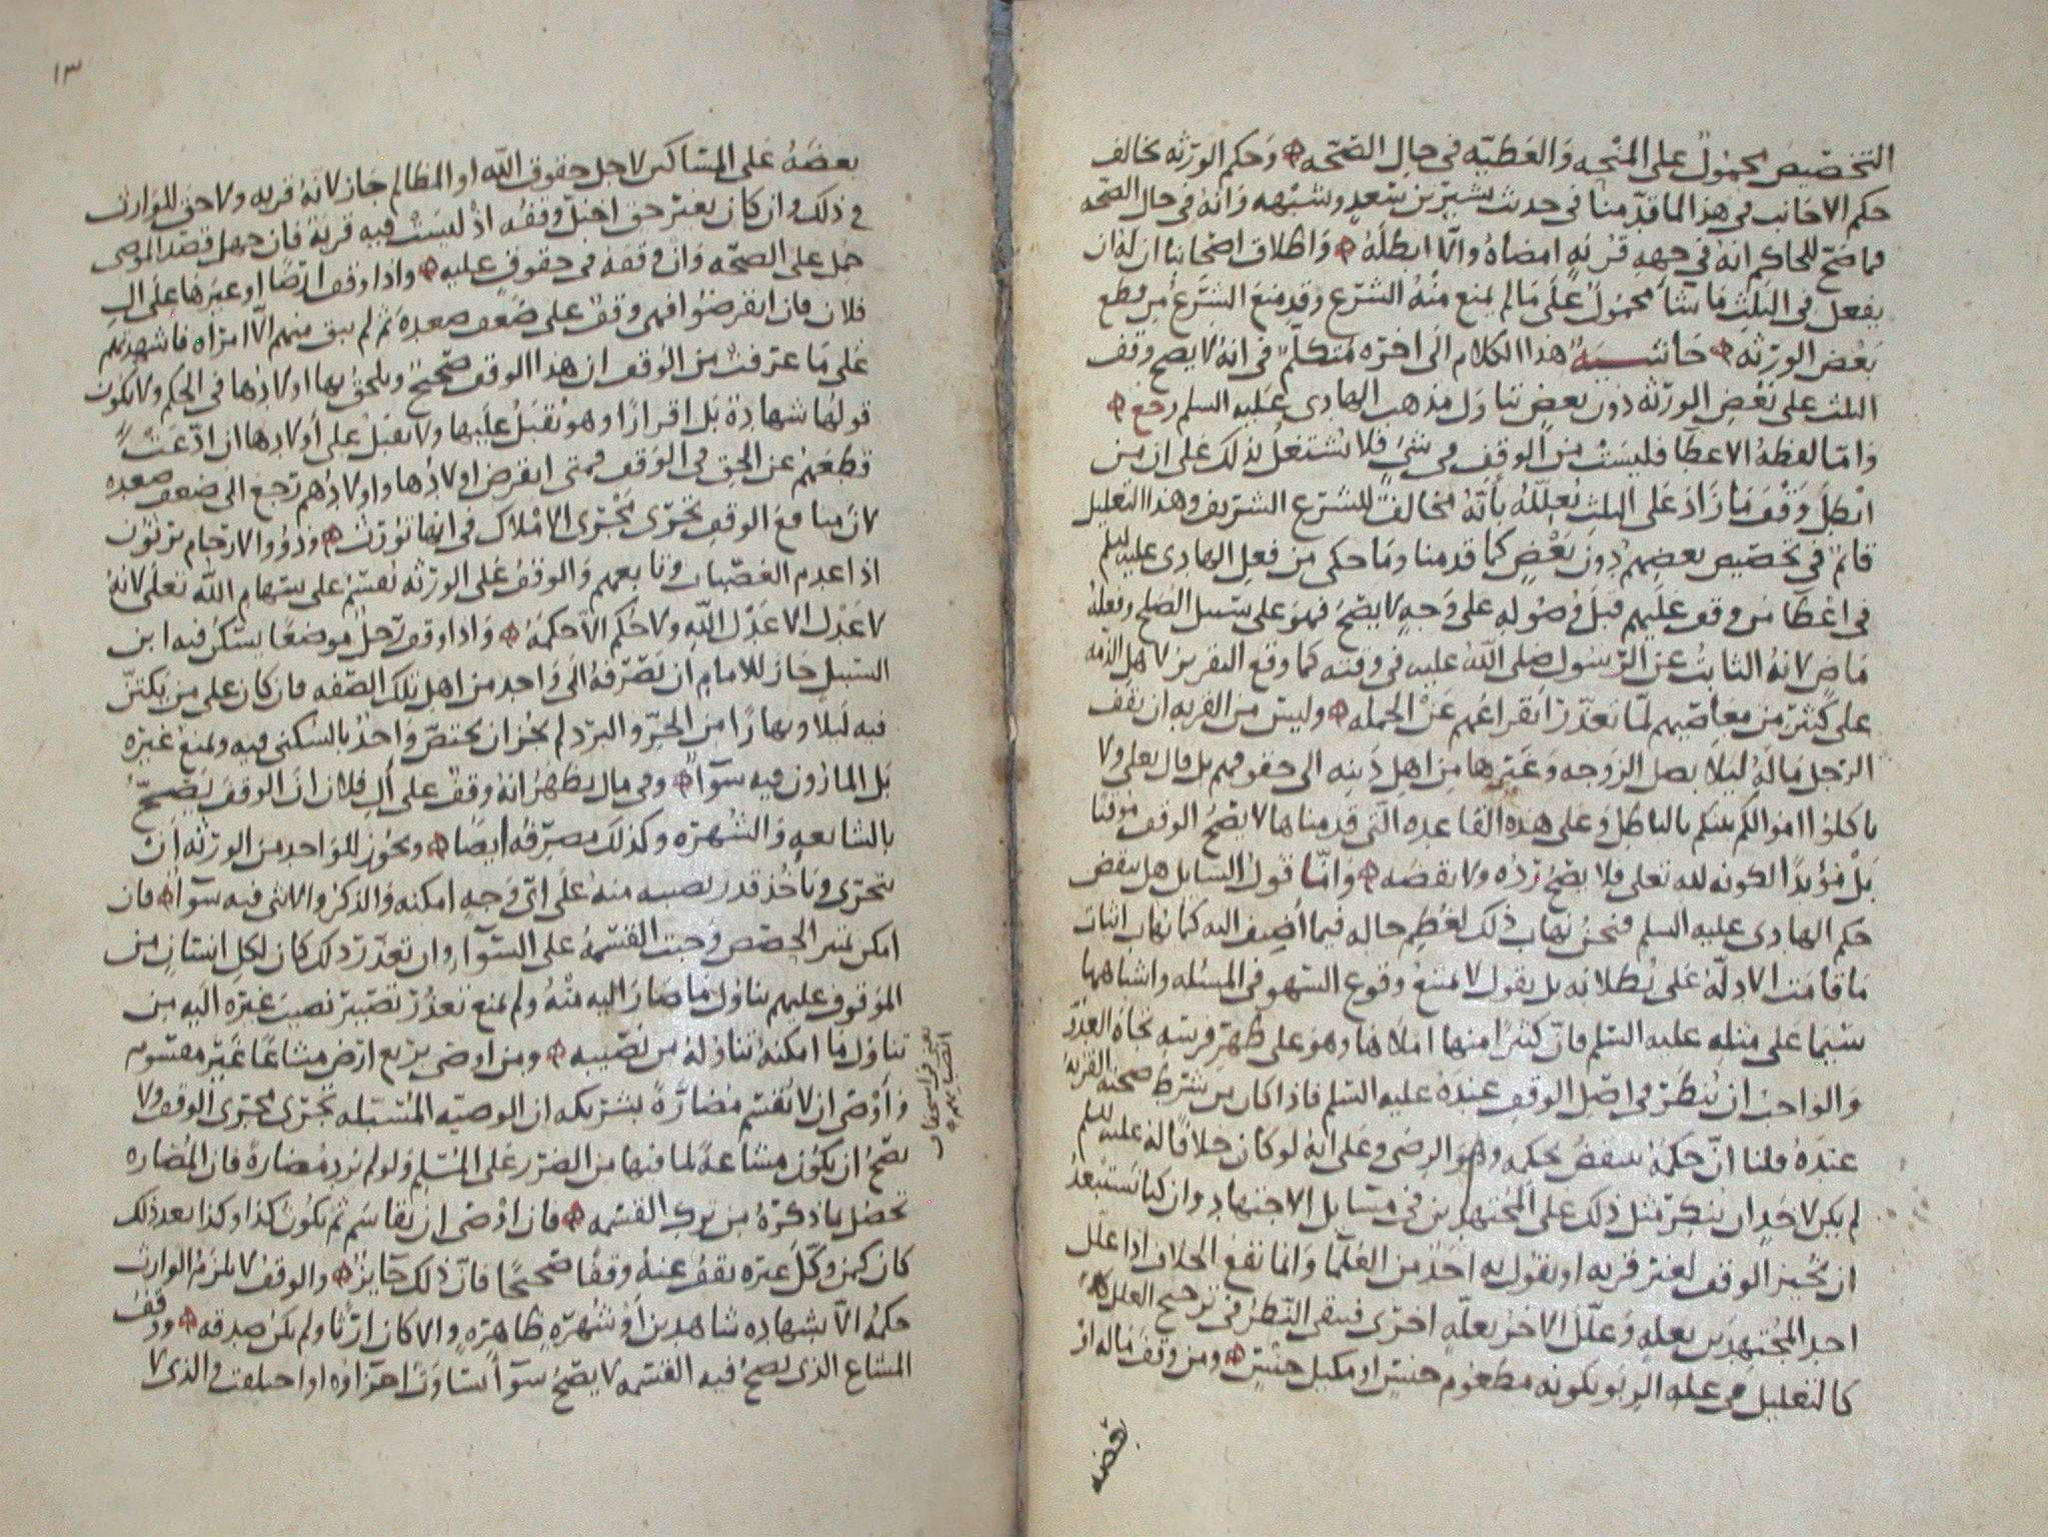 التخصيص محمول على المنحه والعطيه في حال الصحه وحكم الورثه مخالف
حكم الاجانب في هذا لما قدمنا في حديث بشير بن سعد وشبهه وانه في حال الصحه
فما صح للحاكم انه في جهه قربه امضاه والا ابطله واطلاق اصحابنا ان له ان
يفعل في الثلث ما شا محمول على ما لم يمنع منه الشرع وقد منع الشرع من قطع
بعض الورثه حاشيه هذا الكلام الى اخره متكلم في انه لا يصح وقف
الثلث على بعض الورثه دون بعض تناول مذهب الهادي عليه السلم رجع
واما لفظه الاعطا فليست من الوقف في شي فلا يشتغل بذلك على ان من
ابطل وقف ما زاد على الثلث يعلله بانه مخالف للشرع الشريف وهذا التعليل
قائم في تخصيص بعضهم دون بعض كما قدمنا وما حكى من فعل الهادي عليه السلم
في اعطا من وقف عليهم قبل وصوله على وجه لا يصح فهو على سبيل الصلح وفعله
ماض لانه الثابت عن الرسول صلى الله عليه في وقته كما وقع التقرير لاهل الذمه
على كثير من معاصيهم لما تعذر انقراعهم عن الجمله وليس من القربه ان يقف
الرجل ماله ليلا يصل الزوجه وغيرها من اهل دينه الى حقوقهم بل قال تعلى ولا
تاكلوا اموالكم بينكم بالباطل وعلى هذه القاعده التي قدمناها لا يصح الوقف موقتا
بل مؤبدا لكونه لله تعلى فلا يصح رده ولا نقضه واما قول السايل هل ينقض
حكم الهادي عليه السلم فنحن نهاب ذلك لعظم حاله فيما اضيف اليه كما نهاب اثبات
ما قامت الادله على بطلانه بل نقول لا يمتنع وقوع السهو في المسئله واشباهها
سيما على مثله عليه السلم فان كثيرا منها املاها وهو على ظهر فرسه تجاه العدو
والواجب ان ينظر في اصل الوقف عنده عليه السلم فاذا كان من شرط صحته القربه
عنده قلنا ان حكمه ينقض بحكمه وهو الرضى وعلى انه لو كان خلافا له عليه السلم
لم يكن لاحد ان ينكر مثل ذلك على المجتهدين في مسايل الاجتهاد وان كنا نستبعد
ان يجيز الوقف لغير قربه او يقول به احد من العلما وانما يقع الخلاف اذا علل
احد المجتهدين بعله وعلل الاخر بعله اخرى فيبقى النظر في ترجيح العلل
كالتعليل في عله الربو بكونه مطعوم جنس او مكيل جنس ومن وقف ماله او
بعضه
١٣
بعضه على المساكين لاجل حقوق الله او المظالم جاز لانه قربه ولا حق للوارث
في ذلك وان كان بغير حق اختل وقفه اذ ليست فيه قربه فان جهل قصد الموصى
حمل على الصحه وان وقفه في حقوق عليه واذا وقف ارضا او غيرها على ال
فلان فان انقرضوا فهي وقف على ضعف صعده ثم لم يبق منهم الا امراه فاشهدتهم
على ما عرفت من الوقف ان هذا الوقف صحيح ويلحق بها اولادها في الحكم ولا يكون
قولها شهادة بل اقرارا وهو يقبل عليها ولا يقبل على اولادها ان ادعت
قطعهم عن الحق في الوقف فمتى انقرض اولادها واولادهم رجع الى ضعف صعده
لان منافع الوقف تجرى مجرى الاملاك في انها تورث وذووا الارحام يرثون
اذا عدم العصبات وتابعهم والوقف على الورثه يقسم على سهام الله تعلى لانه
لا عدل الا عدل الله ولا حكم الا حكمه واذا وقف رجل موضعا يسكن فيه ابن
السبيل جاز للامام ان يصرفه الى واحد من اهل تلك الصفه فان كان على من يكتن
فيه ليلا ونهارا من الحر والبرد لم يجز ان يختص واحد بالسكنى فيه ويمنع غيره
بل المارون فيه سوآ وفي مال يظهر انه وقف على ال فلان ان الوقف يصح
بالشايعه والشهره وكذلك مصرفه ايضا ويجوز للواحد من الورثه ان
يتحرى وياخذ قدر نصيبه منه على اي وجه امكنه والذكر والانثى فيه سوآ فان
امكن تميز الحصص وجبت القسمه على السوآ وان تعذر ذلك كان لكل انسان من
الموقوف عليهم تناول ما صار اليه منه ولم يمنع تعذر تصيير نصيب غيره اليه من
تناول ما امكنه تناوله من نصيبه ومن اوصى بربع ارض مشاعا غير مقسوم
واوصى ان لا يقسم مضارة بشريكه ان الوصيه المسبله تجرى مجرى الوقف ولا
يصح ان يكون مشاعة لما فيها من الضرر على المسلم ولو لم يرد مضارة فان المضاره
تحصل بما ذكره من ترك القسمه فان اوصى ان يقاسم ثم يكون كذا وكذا بعد ذلك
كان كمن وكل غيره يقف عنه وقفا صحيحا فان ذلك جايز والوقف لا يلزم الوارث
حكمه الا بشهاده شاهدين او شهره ظاهره والا كان ارثا ولم يكن صدقه ووقف
المشاع الذي يصح فيه القسمه لا يصح سوآ تساوت اجزاؤه او اختلفت والذي لا